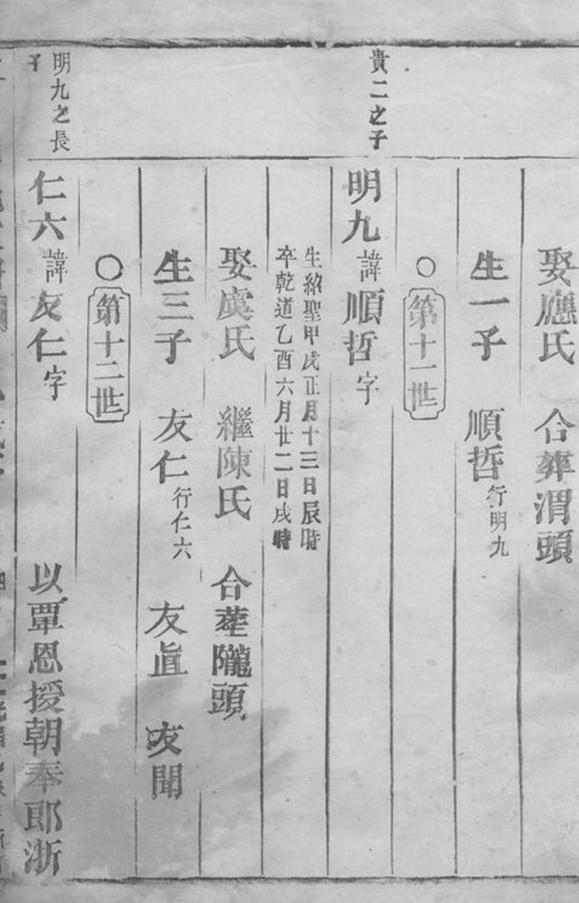 娶應氏 合葬渭頭
生一子 順哲行明九
○第十一世
貴二之子
明九諱順哲字
生紹聖甲戌正月十三日辰時
卒乾道乙酉六月廿二日戌時
娶虞氏 繼陳氏 合葬隴頭
生三子 友仁行仁六 友眞 友聞
○第十二世
明九之長
子
仁六諱友仁字 以覃恩授朝奉郎浙